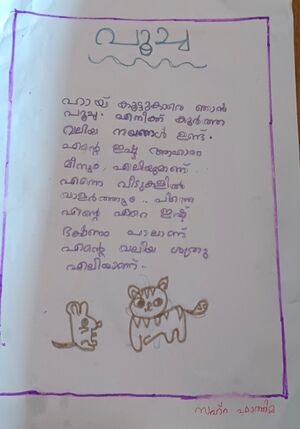 പൂച്ച
ഹായ് കൂട്ടുകാരെ ഞാൻ
പൂച്ച. എനിക്ക് കൂർത്ത
വലിയ നഖങ്ങൾ ഉണ്ട്.
എന്റെ ഇഷ്ട ആഹാരം
മീനും, എലിയുമാണ്.
എന്നെ വീടുകളിൽ
വളർത്തും.. പിന്നെ
എന്റെ ഏറെ ഇഷ്ട
ഭക്ഷണം പാലാണ്
എന്റെ വലിയ ശത്രു
എലിയാണ്..
സഹ്റ ഫാത്തിമ